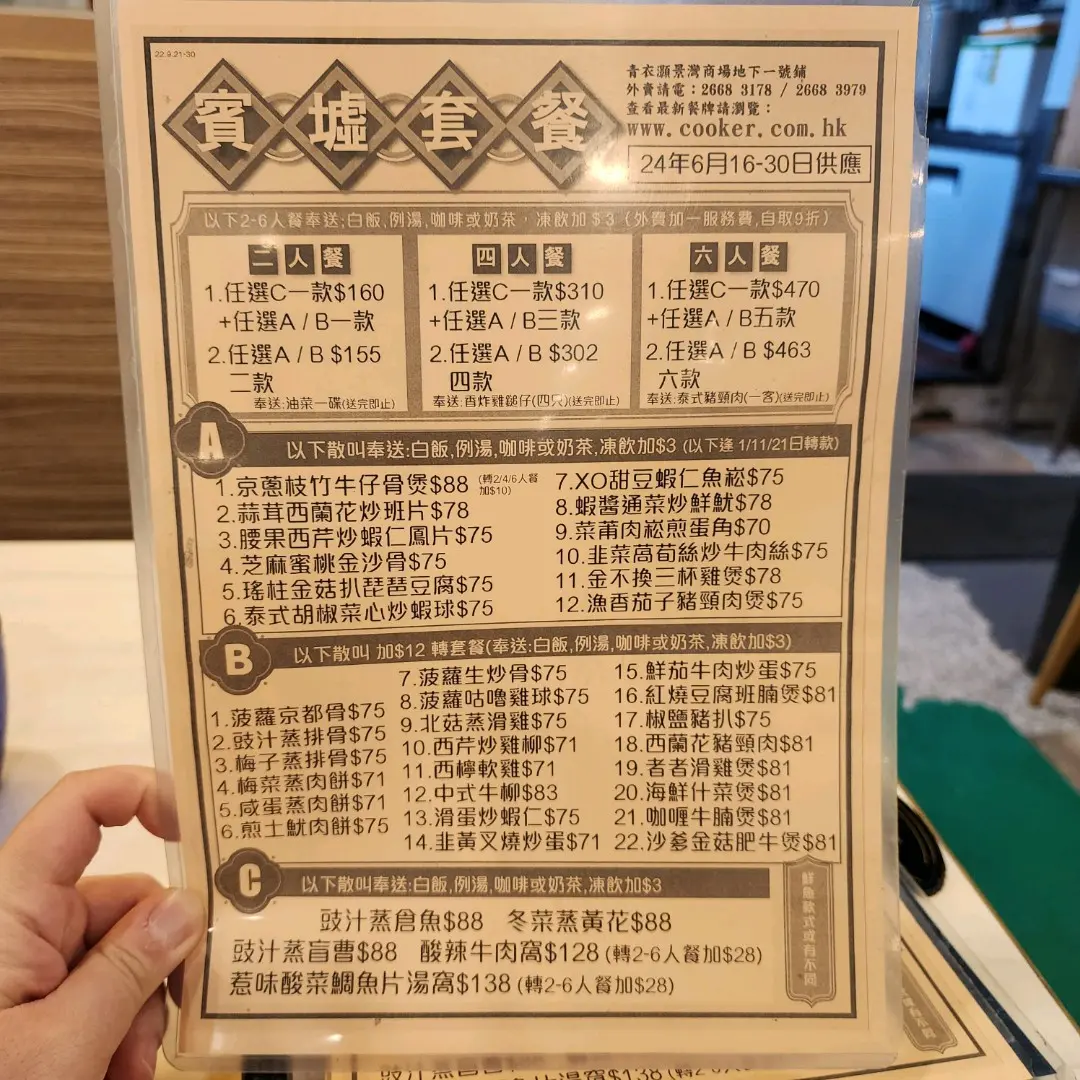 22.9.21-30
賓墟套餐
青衣灝景灣商場地下一號鋪
外賣請電：2668 3178 / 2668 3979
查看最新餐牌請瀏覽：
www.cooker.com.hk
24年6月16-30日供應
以下2-6人餐奉送;白飯,例湯,咖啡或奶茶，凍飲加＄3（外賣加一服務費,自取9折）
二人餐
1.任選C一款$160
+任選A / B一款
2.任選A / B $155
二款
奉送:油菜一碟(送完即止)
四人餐
1.任選C一款$310
+任選A / B三款
2.任選A / B $302
四款
奉送:香炸雞鎚仔(四只)(送完即止)
六人餐
1.任選C一款$470
+任選A / B五款
2.任選A / B $463
六款
奉送:泰式豬頸肉(一客)(送完即止)
A
以下散叫奉送:白飯,例湯,咖啡或奶茶,凍飲加$3 (以下逢 1/11/21日轉款)
1.京蔥枝竹牛仔骨煲$88 (轉2/4/6人餐加$10)
2.蒜茸西蘭花炒班片$78
3.腰果西芹炒蝦仁鳳片$75
4.芝麻蜜桃金沙骨$75
5.瑤柱金菇扒琵琶豆腐$75
6.泰式胡椒菜心炒蝦球$75
7.XO甜豆蝦仁魚崧$75
8.蝦醬通菜炒鮮魷$78
9.菜莆肉崧煎蛋角$70
10.韭菜萵荀絲炒牛肉絲$75
11.金不換三杯雞煲$78
12.漁香茄子豬頸肉煲$75
B
以下散叫 加$12 轉套餐(奉送:白飯,例湯,咖啡或奶茶,凍飲加$3)
1.菠蘿京都骨$75
2.豉汁蒸排骨$75
3.梅子蒸排骨$75
4.梅菜蒸肉餅$71
5.咸蛋蒸肉餅$71
6.煎土魷肉餅$75
7.菠蘿生炒骨$75
8.菠蘿咕嚕雞球$75
9.北菇蒸滑雞$75
10.西芹炒雞柳$71
11.西檸軟雞$71
12.中式牛柳$83
13.滑蛋炒蝦仁$75
14.韭黃叉燒炒蛋$71
15.鮮茄牛肉炒蛋$75
16.紅燒豆腐班腩煲$81
17.椒鹽豬扒$75
18.西蘭花豬頸肉$81
19.者者滑雞煲$81
20.海鮮什菜煲$81
21.咖喱牛腩煲$81
22.沙爹金菇肥牛煲$81
C
以下散叫奉送:白飯,例湯,咖啡或奶茶,凍飲加$3
豉汁蒸倉魚$88 冬菜蒸黃花$88
豉汁蒸盲曹$88 酸辣牛肉窩$128 (轉2-6人餐加$28)
惹味酸菜鯛魚片湯窩$138 (轉2-6人餐加$28)
鮮魚款式或有不同